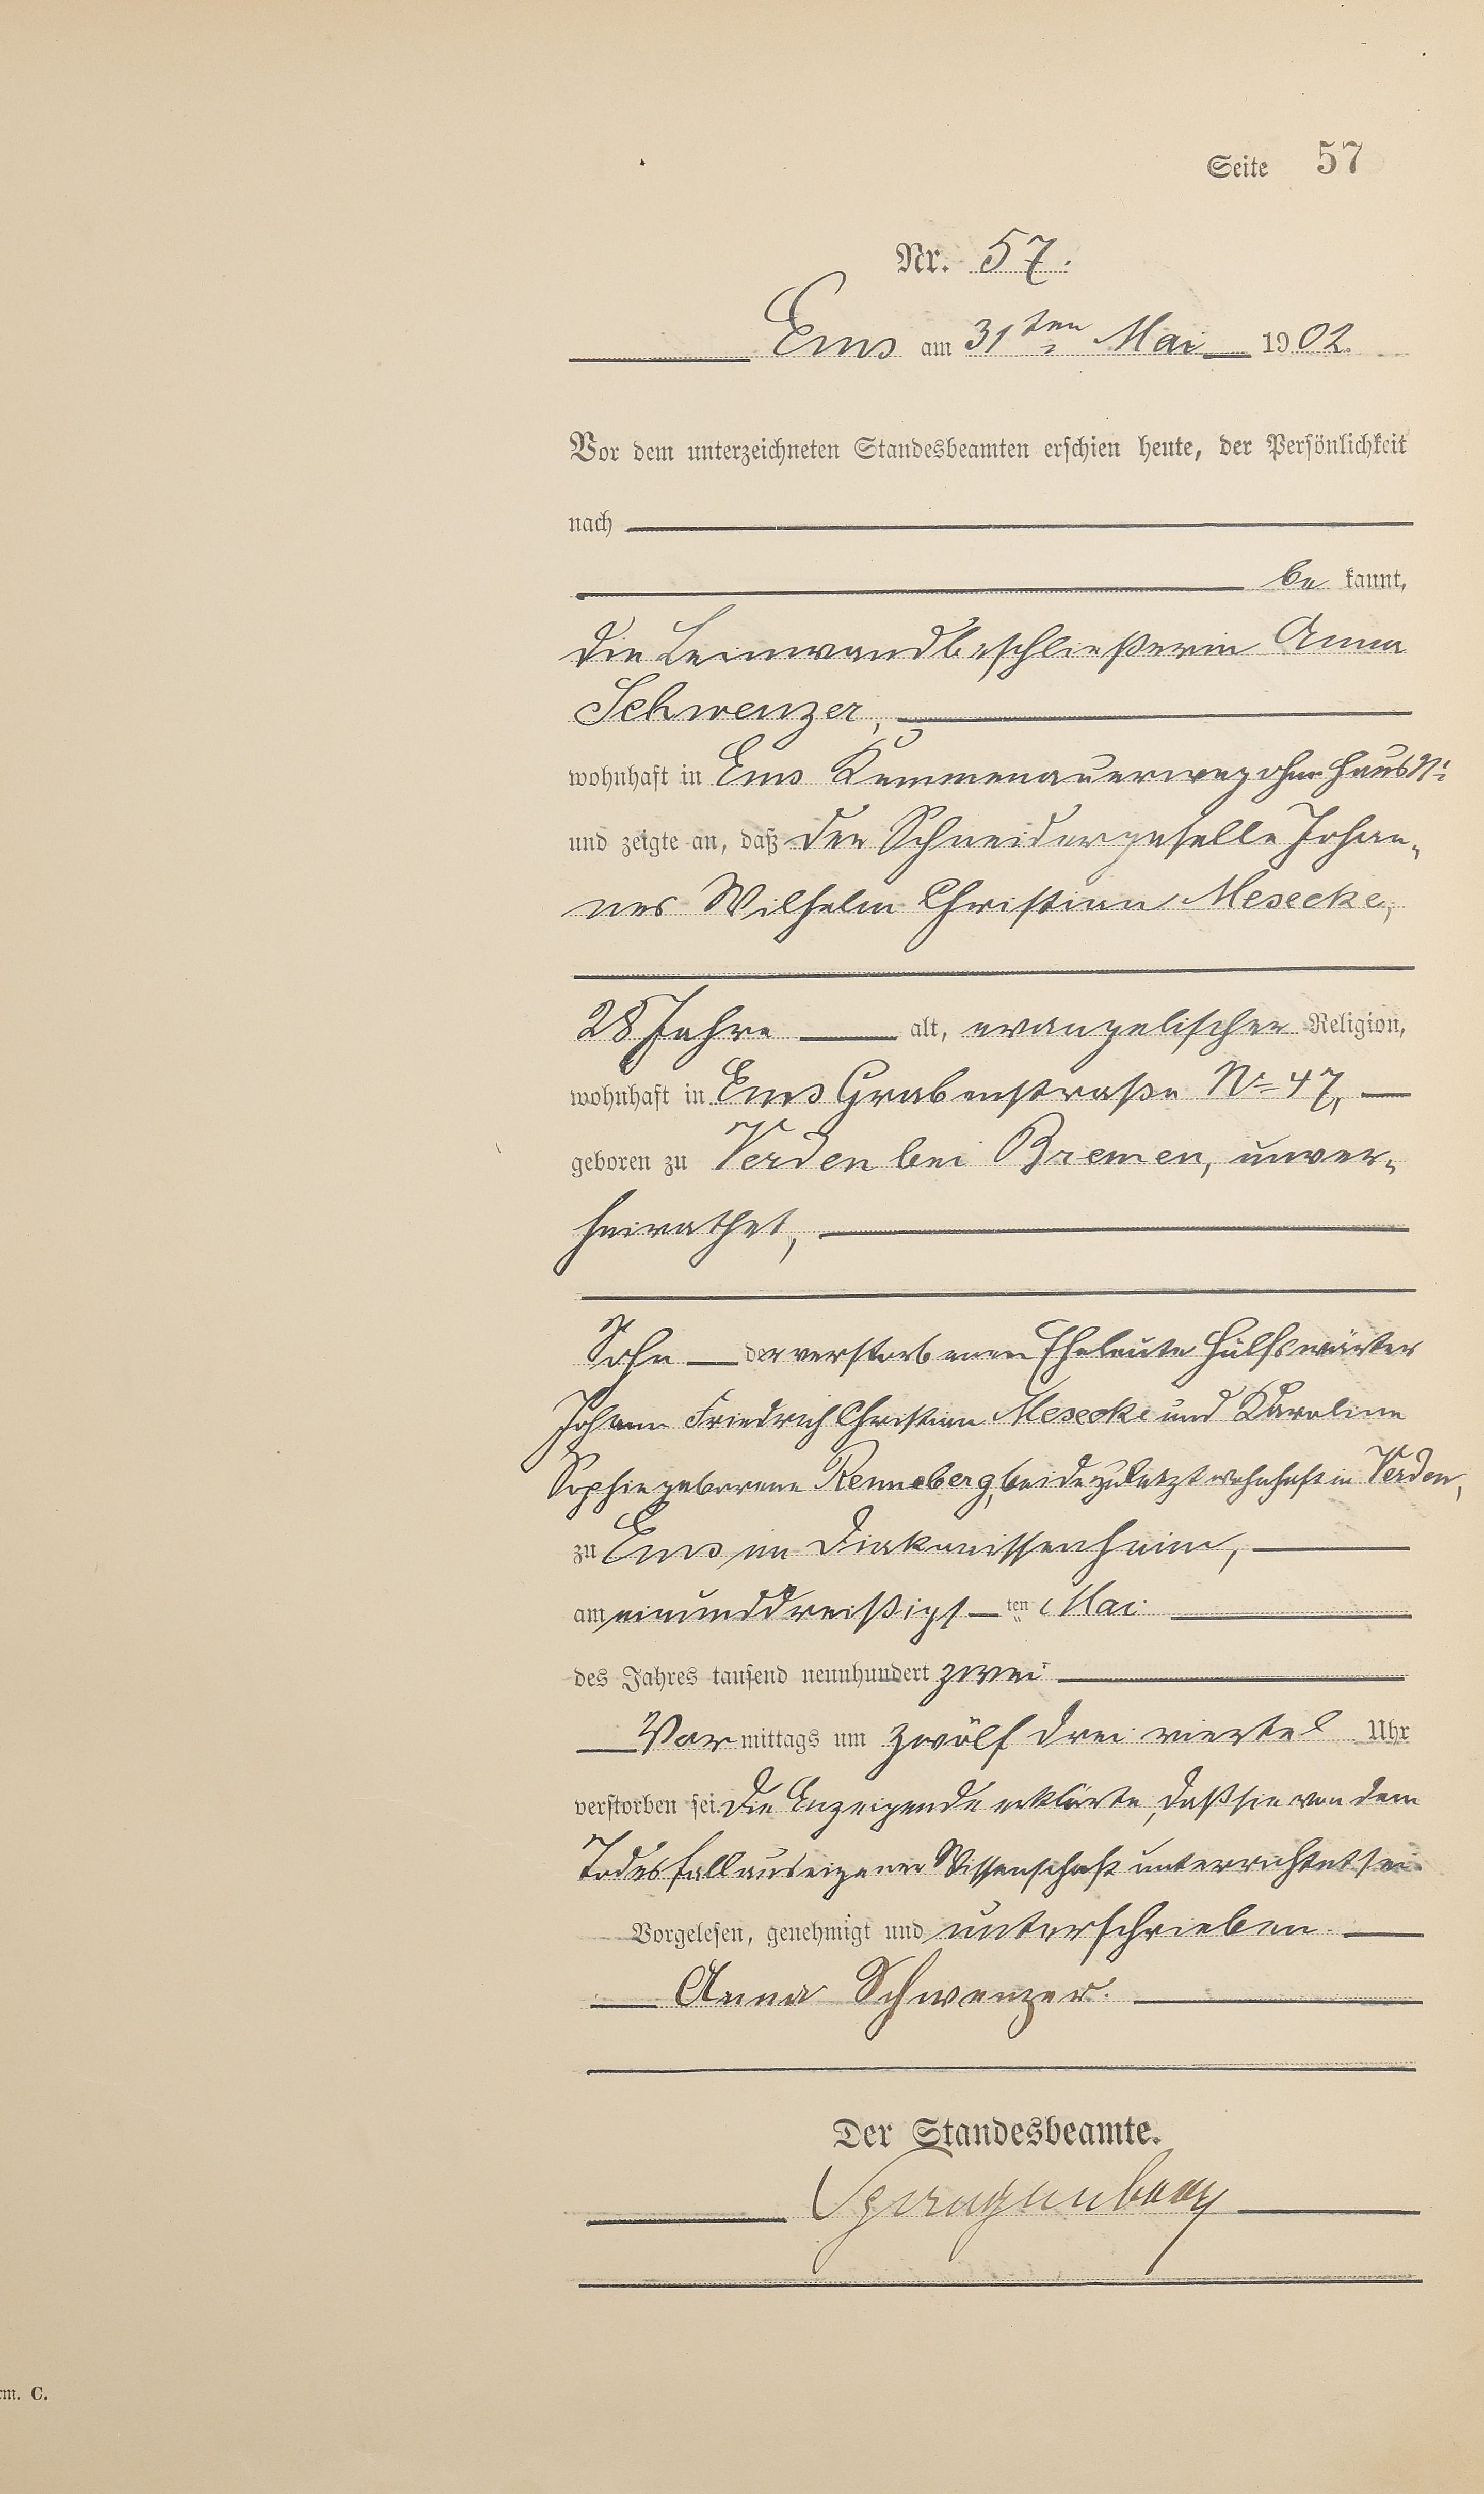 Seite 57
Nr. 57.
Ems am 31ten Mai 1902.
Vor dem unterzeichneten Standesbeamten erschien heute, der Persönlichkeit
nach
be kannt,
die Leinwandbeschließerin Anna
Schwenzer,
wohnhaft in Ems Kemmenauerweg ohne Haus Nr.
und zeigte an, daß der Schneidergeselle Johan-
nes Wilhelm Christian Mesecke,
28 Jahre alt, evangelischer Religion,
wohnhaft in Ems Grabenstraße No 47,
geboren zu Verden bei Bremen, unver-
heirathet,
Sohn der verstorbenen Eheleute Hülfswärter
Johann Friedrich Christian Mesecke und Karoline
Sophie geborene Renneberg, beide zuletzt wohnhaft in Verden,
zu Ems im Diakonissenheim,
am einunddreißigsten Mai
des Jahres tausend neunhundert zwei
Vormittags um zwölf drei viertel Uhr
verstorben sei. Die Anzeigende erklärte, daß sie von dem
Todesfall aus eigener Wissenschaft unterrichtet sei.
Vorgelesen, genehmigt und unterschrieben.
Anna Schwenzer.
Der Standesbeamte.
rm. C.